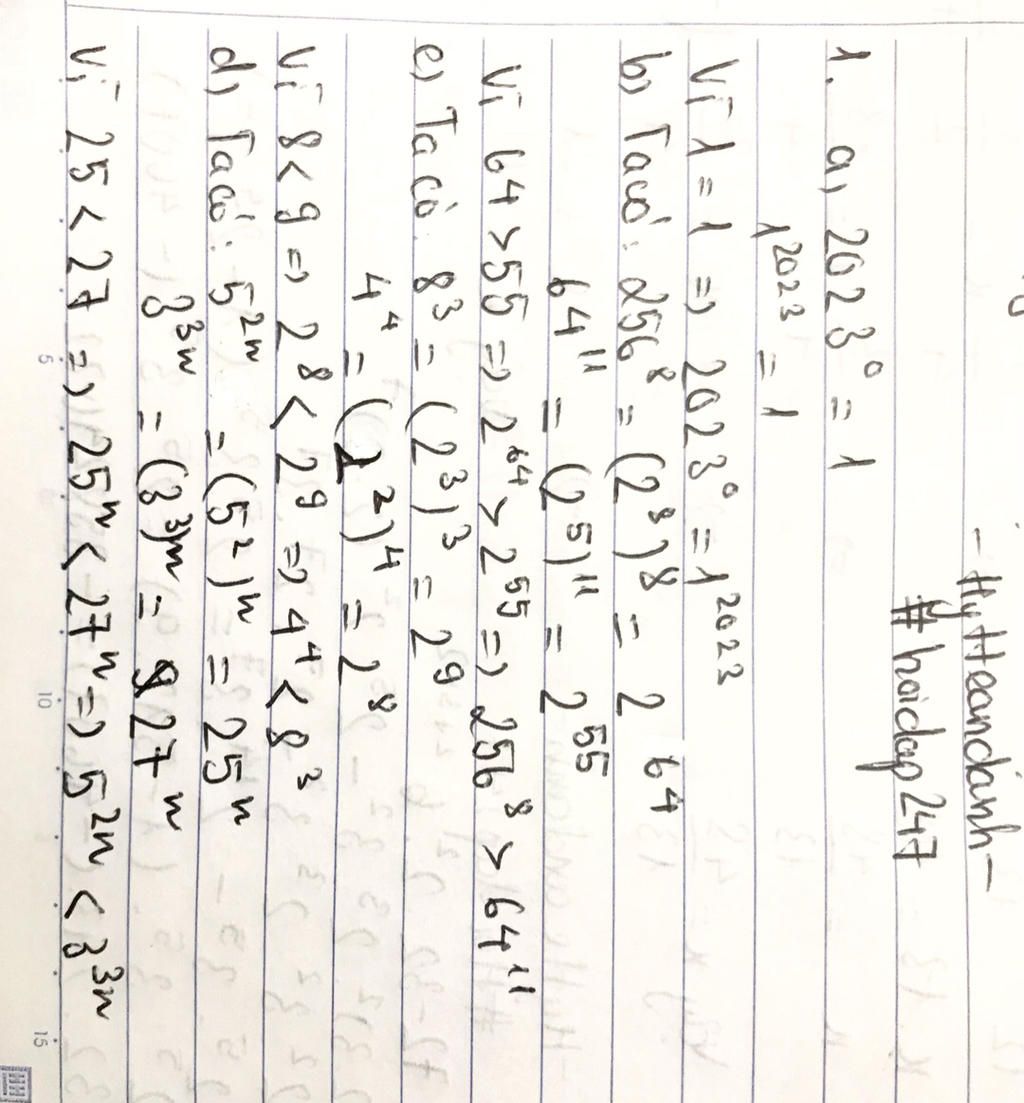 - HyHeandanh -
# hoidap247
1. a, 2023⁰ = 1
1²⁰²³ = 1
Vì 1 = 1 => 2023⁰ = 1²⁰²³
b) Ta có: 256⁸ = (2⁸)⁸ = 2⁶⁴
64¹¹ = (2⁵)¹¹ = 2⁵⁵
Vì 64 > 55 => 2⁶⁴ > 2⁵⁵ => 256⁸ > 64¹¹
c) Ta có: 8³ = (2³)³ = 2⁹
4⁴ = (2²)⁴ = 2⁸
Vì 8 < 9 => 2⁸ < 2⁹ => 4⁴ < 8³
d) Ta có: 5²ⁿ = (5²)ⁿ = 25ⁿ
3³ⁿ = (3³)ⁿ = 27ⁿ
Vì 25 < 27 => 25ⁿ < 27ⁿ => 5²ⁿ < 3³ⁿ
5 10 15